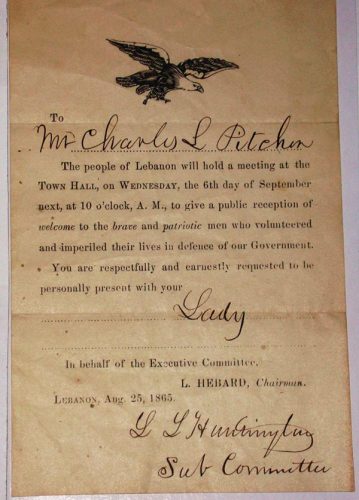 To
Mr Charles L Pitcher
The people of Lebanon will hold a meeting at the
TOWN HALL, ON WEDNESDAY, the 6th day of September
next, at 10 o'clock, A. M., to give a public reception of
welcome to the brave and patriotic men who volunteered
and imperiled their lives in defence of our Government.
You are respectfully and earnestly requested to be
personally present with your
Lady
In behalf of the Executive Committee,
L. HEBARD, Chairman.
LEBANON, Aug. 25, 1865.
L L Huntington
Sub Committee